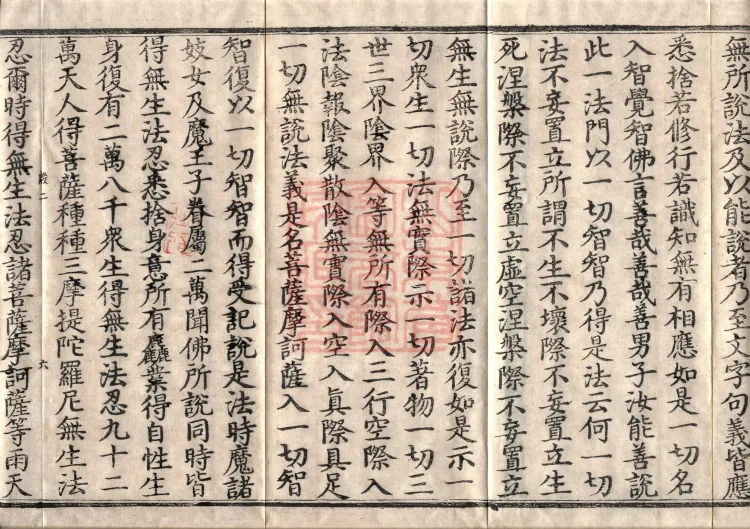 無所說法及以能說者乃至文字句義皆應
悉捨若修行若識知無有相應如是一切名
入智覺智佛言善哉善哉善男子汝能善說
此一法門以一切智智乃得是法云何一切
法不妄置立所謂不生不壞際不妄置立生
死涅槃際不妄置立虛空涅槃際不妄置立
無生無說際乃至一切諸法亦復如是示一
切衆生一切法無實際示一切著物一切三
世三界陰界入等無所有際入三行空際入
法陰報陰聚散陰無實際入空入眞際具足
一切無說法義是名菩薩摩訶薩入一切智
智復以一切智智而得受記說是法時魔諸
妓女及魔王子眷屬二萬聞佛所說同時皆
得無生法忍悉捨身意所有麤業得自性生
身復有二萬八千衆生得無生法忍九十二
殿二 六
萬天人得菩薩種種三摩提陀羅尼無生法
忍爾時得無生法忍諸菩薩摩訶薩等雨天